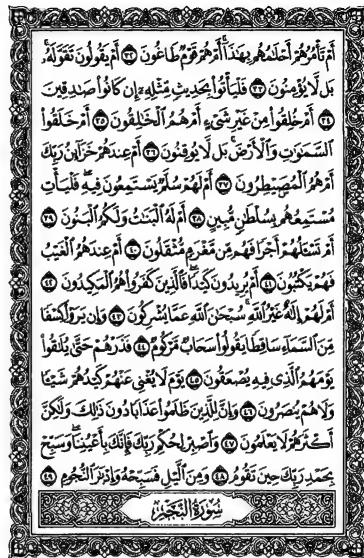 أَمْ تَأْمُرُهُمْ أَحْلَـٰمُهُم بِهَـٰذَآ ۚ أَمْ هُمْ قَوْمٌ طَاغُونَ ٣٢ أَمْ يَقُولُونَ تَقَوَّلَهُۥ ۚ
بَل لَّا يُؤْمِنُونَ ٣٣ فَلْيَأْتُوا۟ بِحَدِيثٍ مِّثْلِهِۦٓ إِن كَانُوا۟ صَـٰدِقِينَ
٣٤ أَمْ خُلِقُوا۟ مِنْ غَيْرِ شَىْءٍ أَمْ هُمُ ٱلْخَـٰلِقُونَ ٣٥ أَمْ خَلَقُوا۟
ٱلسَّمَـٰوَٰتِ وَٱلْأَرْضَ ۚ بَل لَّا يُوقِنُونَ ٣٦ أَمْ عِندَهُمْ خَزَآئِنُ رَبِّكَ
أَمْ هُمُ ٱلْمُصَۣيْطِرُونَ ٣٧ أَمْ لَهُمْ سُلَّمٌ يَسْتَمِعُونَ فِيهِ ۖ فَلْيَأْتِ
مُسْتَمِعُهُم بِسُلْطَـٰنٍ مُّبِينٍ ٣٨ أَمْ لَهُ ٱلْبَنَـٰتُ وَلَكُمُ ٱلْبَنُونَ ٣٩
أَمْ تَسْـَٔلُهُمْ أَجْرًا فَهُم مِّن مَّغْرَمٍ مُّثْقَلُونَ ٤٠ أَمْ عِندَهُمُ ٱلْغَيْبُ
فَهُمْ يَكْتُبُونَ ٤١ أَمْ يُرِيدُونَ كَيْدًا ۖ فَٱلَّذِينَ كَفَرُوا۟ هُمُ ٱلْمَكِيدُونَ ٤٢
أَمْ لَهُمْ إِلَـٰهٌ غَيْرُ ٱللَّهِ ۚ سُبْحَـٰنَ ٱللَّهِ عَمَّا يُشْرِكُونَ ٤٣ وَإِن يَرَوْا۟ كِسْفًا
مِّنَ ٱلسَّمَآءِ سَاقِطًا يَقُولُوا۟ سَحَابٌ مَّرْكُومٌ ٤٤ فَذَرْهُمْ حَتَّىٰ يُلَـٰقُوا۟
يَوْمَهُمُ ٱلَّذِى فِيهِ يُصْعَقُونَ ٤٥ يَوْمَ لَا يُغْنِى عَنْهُمْ كَيْدُهُمْ شَيْـًٔا
وَلَا هُمْ يُنصَرُونَ ٤٦ وَإِنَّ لِلَّذِينَ ظَلَمُوا۟ عَذَابًا دُونَ ذَٰلِكَ وَلَـٰكِنَّ
أَكْثَرَهُمْ لَا يَعْلَمُونَ ٤٧ وَٱصْبِرْ لِحُكْمِ رَبِّكَ فَإِنَّكَ بِأَعْيُنِنَا ۖ وَسَبِّحْ
بِحَمْدِ رَبِّكَ حِينَ تَقُومُ ٤٨ وَمِنَ ٱلَّيْلِ فَسَبِّحْهُ وَإِدْبَـٰرَ ٱلنُّجُومِ ٤٩
سُورَةُ النَّجْمِ